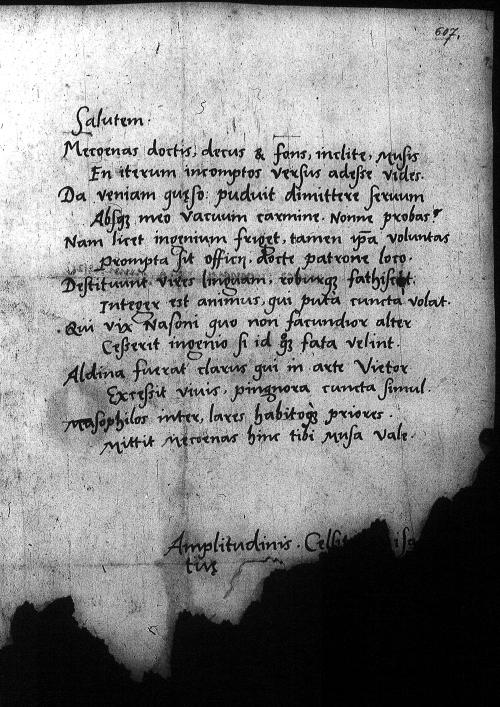 607.
Salutem.
Mecoenas doctis, decus & fons, inclite, Musis
En iterum incomptos versus adesse vides.
Da veniam quęso: puduit dimittere servum
Absq; meo vacuum carmine. Nonne probas?
Nam licet ingenium friget, tamen ip̄a voluntas
prompta sit officij, docte patrone loco.
Destituunt vires linguam, roburq; fathiscit.
Integer est animus, qui puta cuncta volat.
Qui vix Nasoni quo non facundior alter
Cesserit ingenio si id q; fata velint.
Aldina fuerat clarus qui in arte Vietor
Excessit vivis, pingnora cuncta simul.
Masophilos inter, lares habitoq; priores.
Mittit Mecoenas hinc tibi Musa vale.
Amplitudinis. Cel
tuę